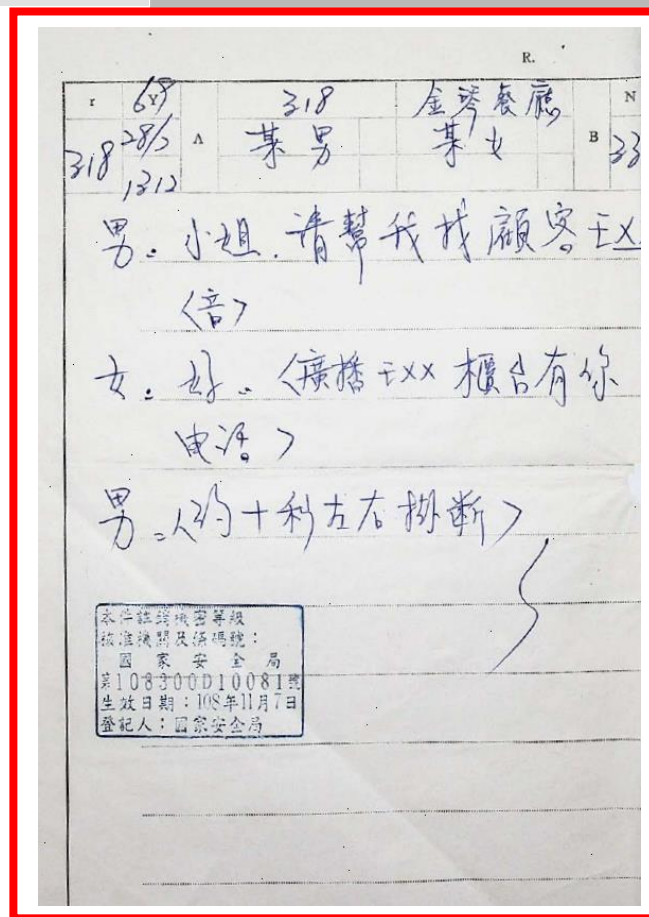 R.
r 69 Y 318 金琴餐廳 N
318 28/2 A 某男 某女 B 33
1312
男。小姐.請幫我找顧客王X
〈音〉
女。好。〈廣播王XX櫃台有你
电话〉
男。〈約十秒左右掛斷〉
本件註銷機密等級
核准機關及號碼號：
國家安全局
第108300D10081號
生效日期：108年11月7日
登記人：國家安全局